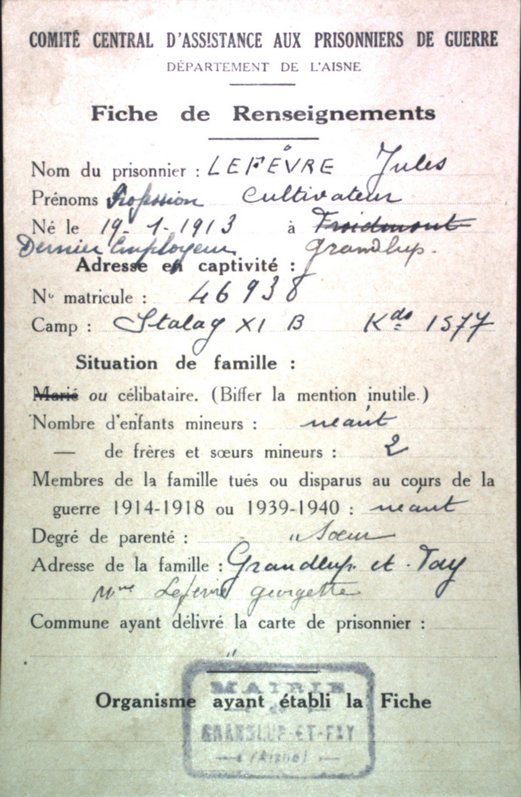 COMITÉ CENTRAL D'ASSISTANCE AUX PRISONNIERS DE GUERRE
DÉPARTEMENT DE L'AISNE
Fiche de Renseignements
Nom du prisonnier : LEFÈVRE Jules
Prénoms Profession Cultivateur
Né le 19-1-1913 à Froidmont
Dernier Employeur Grandlup.
Adresse en captivité :
No matricule : 46938
Camp : Stalag XI B Kdo 1577
Situation de famille :
Marié ou célibataire. (Biffer la mention inutile.)
Nombre d'enfants mineurs : néant
— de frères et sœurs mineurs : 2
Membres de la famille tués ou disparus au cours de la
guerre 1914-1918 ou 1939-1940 : néant
Degré de parenté : " Sœur
Adresse de la famille : Grandlup et Fay
Mme Lefevre georgette
Commune ayant délivré la carte de prisonnier :
"
Organisme ayant établi la Fiche
MAIRIE
de
GRANDLUP-ET-FAY
(Aisne)